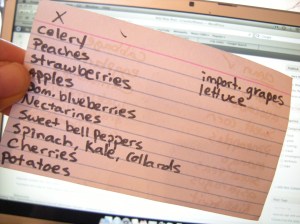 X
celery
Peaches
strawberries
apples
Dom. blueberries
Nectarines
Sweet bell peppers
Spinach, Kale, collards
Cherries
Potatoes
import. grapes
lettuce